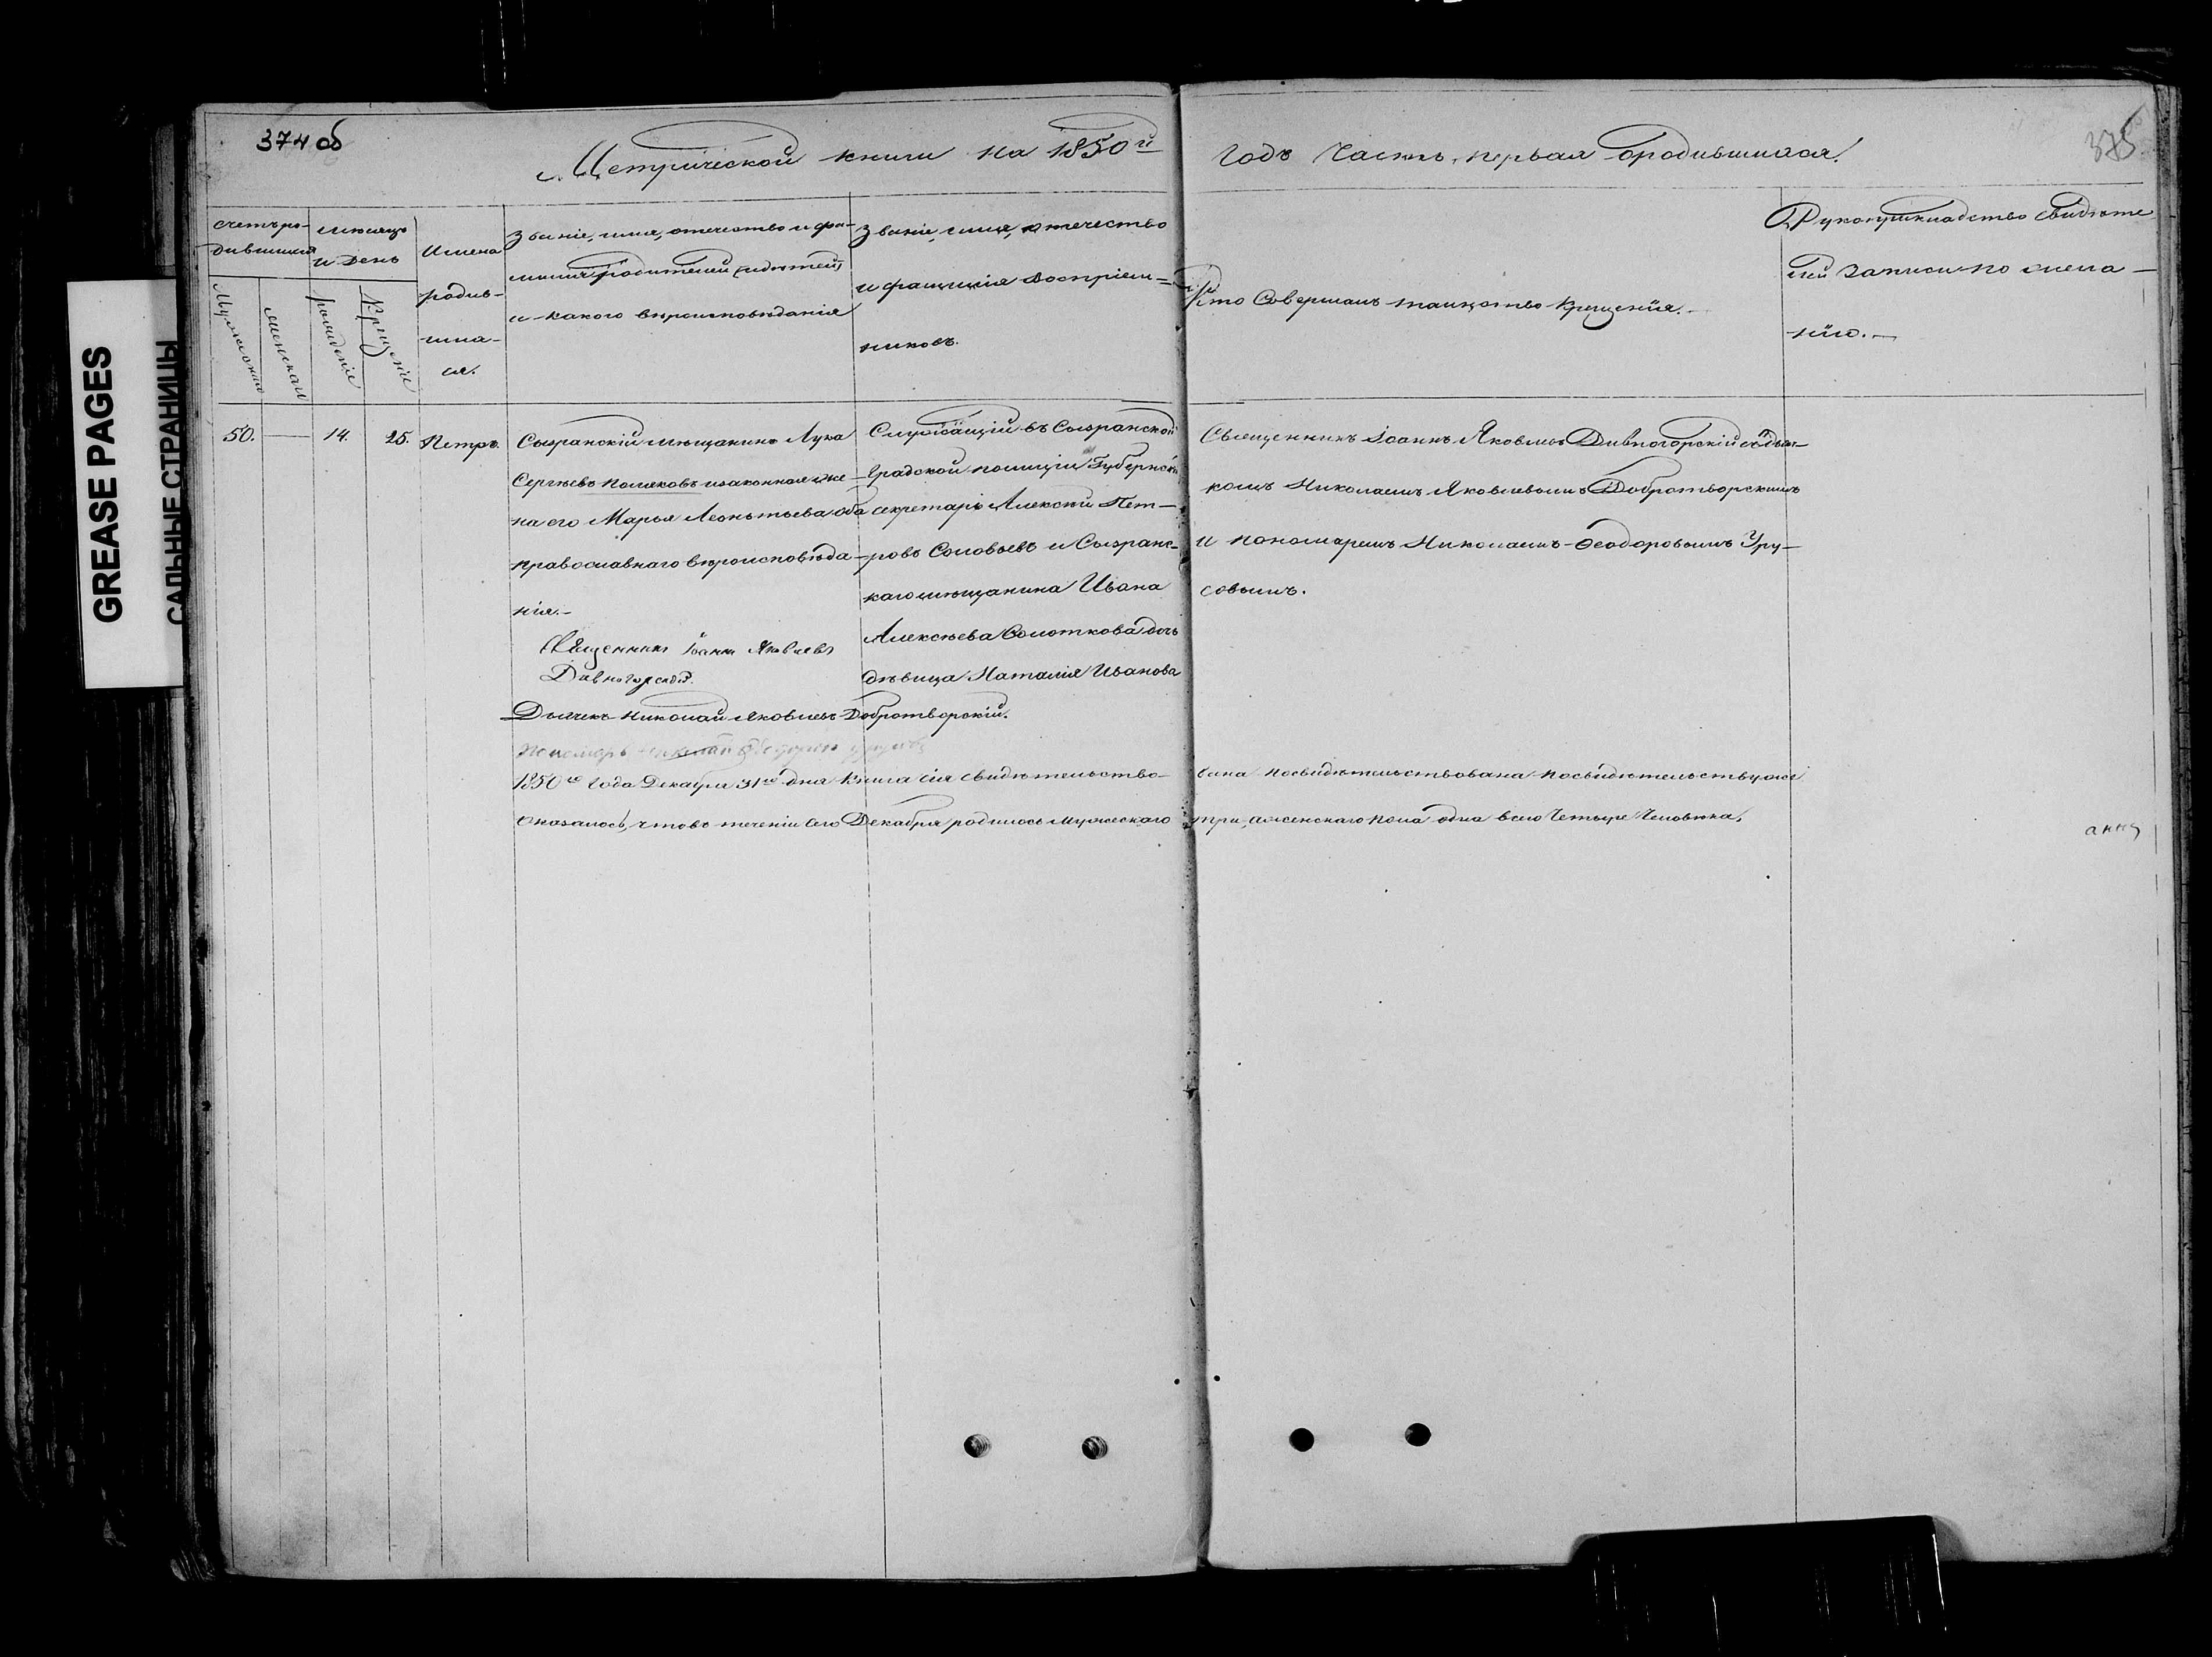 374 об
Метрической книги на 1850й
годъ часть первая ородившихся.
375
счетъ ро-
дившихся
Мужескаго
женскаго
месяцъ
и день
рожденіе
Крещеніе
Имена
родив-
шиха-
ся.
Званіе, имя, отечество и фа-
милія родителей (идѣтей)
и какого вѣроисповѣданія
Званіе, имя, отечество
и фамилія воспріем-
никовъ.
Кто Совершалъ таинство Крещенія.
Рукоприкладство свидѣте
лей записи по жела-
нію.
50.
14.
25.
Петръ.
Сызранскій мѣщанинъ Лука
Сергѣевъ Поляковъ изаконная же-
на его Марья Леонтьева оба
православнаго вѣроисповѣда-
нія.
Служащій въ Сызранской
Градской полиціи Губернскій
секретарь Алексѣй Пет-
ровъ Соловьевъ и Сызранс-
каго мѣщанина Ивана
Алексѣева Солоткова дочь
дѣвица Наталія Иванова
Священникъ Іоаннъ Яковлевъ Дивногорскій съ дьяч-
комъ Николаемъ Яковлевымъ Добротворскимъ
и пономаремъ Николаемъ Ѳеодоровымъ Уру-
совымъ.
Священникъ Іоаннъ Яковлевъ
Дивногорскій.
Дьячекъ Николай Яковлевъ Добротворскій.
Пономарь Николай Ѳедоровъ Урусовъ
1850го года Декабря 31го дня Книга сія свидѣтельство-
вана посвидѣтельствована посвидѣтельству
Оказалось, что въ теченіи сего Декабря родилось мужескаго
три, аженскаго пола одна всего Четыре Человѣка.
GREASE PAGES
САЛЬНЫЕ СТРАНИЦЫ